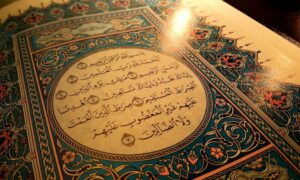 بِسْمِ اللَّهِ الرَّحْمَٰنِ الرَّحِيمِ
الْحَمْدُ لِلَّهِ رَبِّ الْعَالَمِينَ
الرَّحْمَٰنِ الرَّحِيمِ مَالِكِ يَوْمِ الدِّينِ
إِيَّاكَ نَعْبُدُ وَإِيَّاكَ نَسْتَعِينُ اهْدِنَا
الصِّرَاطَ الْمُسْتَقِيمَ صِرَاطَ الَّذِينَ أَنْعَمْتَ
عَلَيْهِمْ غَيْرِ الْمَغْضُوبِ عَلَيْهِمْ
وَلَا الضَّالِّينَ